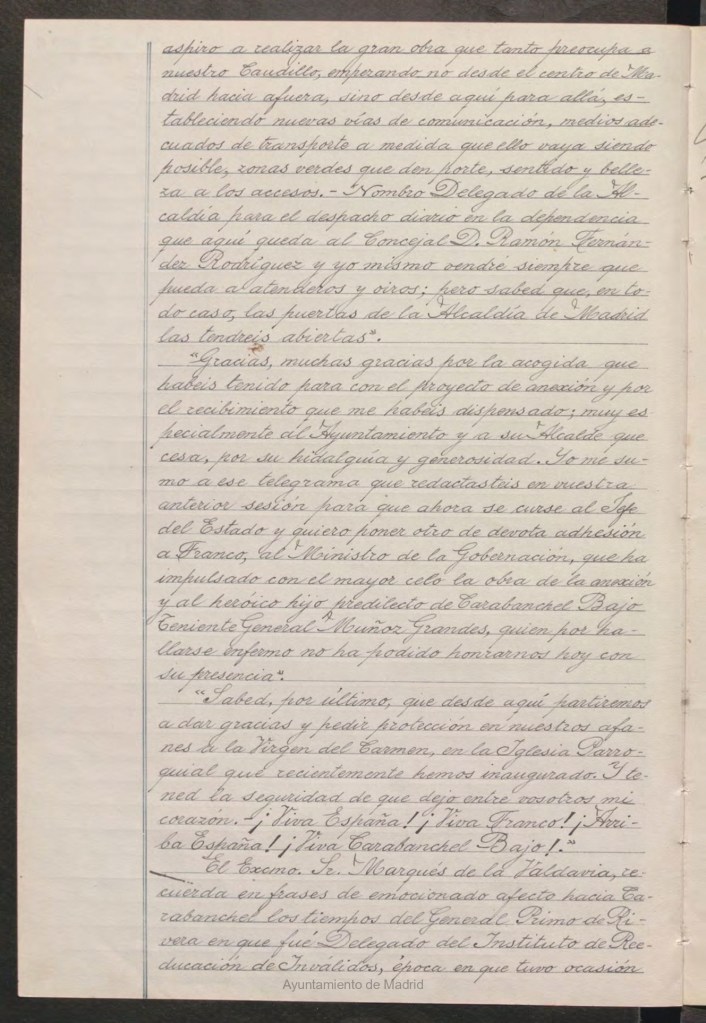 aspiro a realizar la gran obra que tanto preocupa a
nuestro Caudillo, emperando, no desde el centro de Ma-
drid hacia afuera, sino desde aquí para allá, es-
tableciendo nuevas vías de comunicación, medios ade-
cuados de transporte a medida que ello vaya siendo
posible, zonas verdes que den porte, sentido y belle-
za a los accesos. - Nombro Delegado de la Al-
caldía para el despacho diario en la dependencia
que aquí queda al Concejal D. Ramón Fernán-
dez Rodríguez y yo mismo vendré siempre que
pueda a atenderos y oiros; pero sabed que, en to-
do caso, las puertas de la Alcaldía de Madrid
las tendreis abiertas".
"Gracias, muchas gracias por la acogida que
habeis tenido para con el proyecto de anexión y por
el recibimiento que me habeis dispensado; muy es
pecialmente al Ayuntamiento y a su Alcalde que
cesa, por su hidalguía y generosidad. Yo me su-
mo a ese telegrama que redactasteis en vuestra
anterior sesión para que ahora se curse al Jefe
del Estado y quiero poner otro de devota adhesión
a Franco, al Ministro de la Gobernación, que ha
impulsado con el mayor celo la obra de la anexión
y al heróico hijo predilecto de Carabanchel Bajo
Teniente General Muñoz Grandes, quien por ha-
llarse enfermo no ha podido honrarnos hoy con
su presencia".
"Sabed, por último, que desde aquí partiremos
a dar gracias y pedir protección en nuestros afa-
nes a la Virgen del Carmen, en la Iglesia Parro-
quial que recientemente hemos inaugurado. Y te-
ned la seguridad de que dejo entre vosotros mi
corazón. - ¡Viva España! ¡Viva Franco! ¡Arri-
ba España! ¡Viva Carabanchel Bajo!."
El Excmo. Sr. Marqués de la Valdavia, re-
cuerda en frases de emocionado afecto hacia Ca-
rabanchel los tiempos del General Primo de Ri-
vera en que fué Delegado del Instituto de Ree-
ducación de Inválidos, época en que tuvo ocasión
Ayuntamiento de Madrid